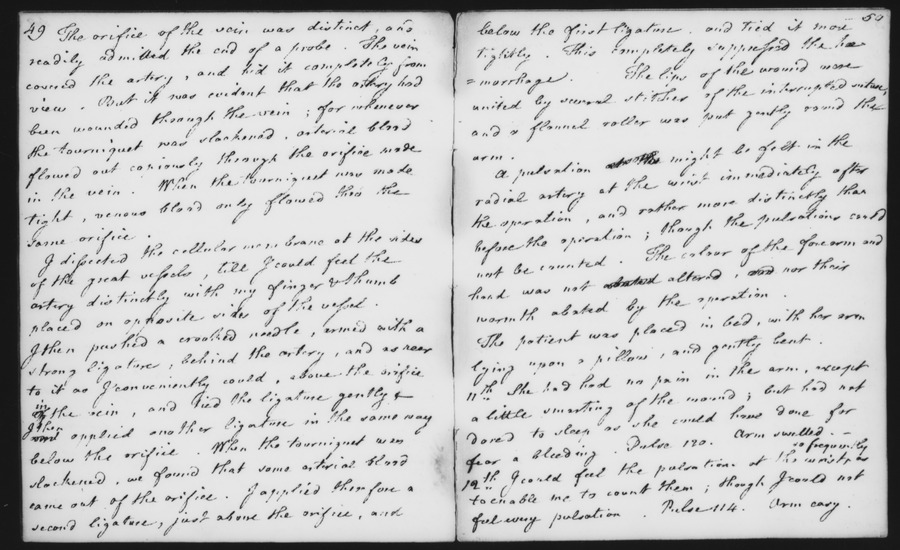 49 The orifice of the vein was distinct, and
readily admitted the end of a probe. The vein
covered the artery, and hid it completely from
view. But it was evident that the artery had
been wounded through the vein; for whenever
the tourniquet was slackened, arterial blood
flowed out copiously through the orifice made
in the vein. When the tourniquet was made
tight, venous blood only flowed thro the
same orifice.
I dissected the cellular membrane at the sides
of the great vessels, till I could feel the
artery distinctly with my finger & thumb
placed on opposite sides of the vessel.
I then pushed a crooked needle, armed with a
strong ligature, behind the artery, and as near
to it as I conveniently could, above the orifice
in the vein, and tied the ligature gently &
I then applied another ligature in the same way
below the orifice. When the tourniquet was
slackened, we found that some arterial blood
came out of the orifice. I applied therefore a
second ligature, just above the orifice, and
50
below the first ligature. and tied it more
tightly. This completely suppressed the hæ
=morrhage. The lips of the wound were
united by several stitches of the interrupted suture,
and a flannel roller was put gently round the
arm.
A pulsation might be felt in the
radial artery at the wrist immediately after
the operation, and rather more distinctly than
before the operation; though the pulsations could
not be counted. The colour of the forearm and
hand was not altered, nor their
warmth abated by the operation.
The patient was placed in bed, with her arm
lying upon a pillow, and gently bent.
11th She had had no pain in the arm, except
a little smarting of the wound; but had not
dared to sleep as she could have done for
fear a bleeding. Pulse 120. Arm swelled. –
12th I could feel the pulsations at the wrist, so frequently as
to enable me to count them; though I could not
feel every pulsation. Pulse 114. Arm easy.